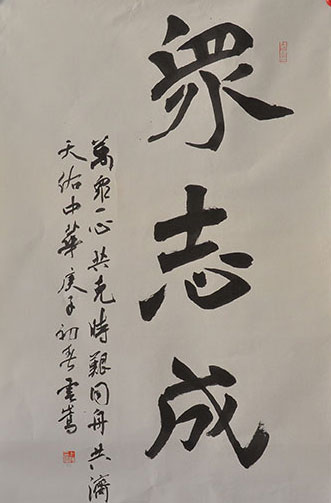 眾志成
萬眾一心共克時艱同舟共濟
天佑中華庚子初春雲嵩